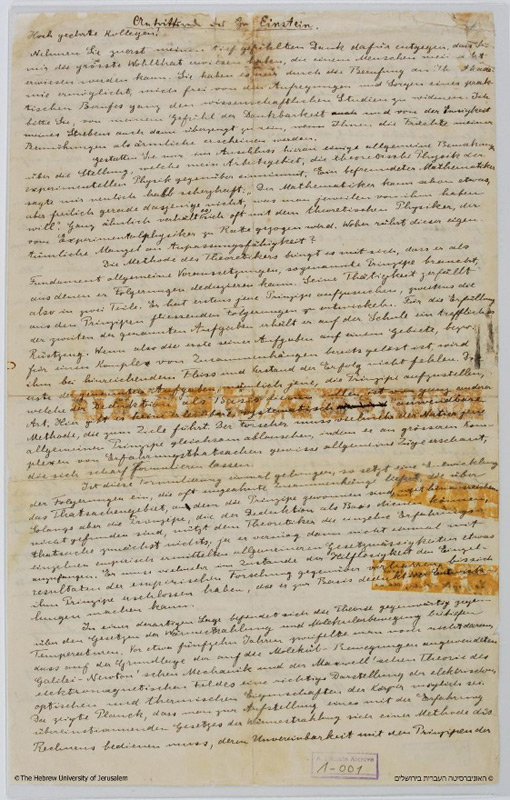 Antrittsrede des Hn Einstein.
Hoch geehrte Kollegen!
Nehmen Sie zuerst meinen tief gefühlten Dank dafür entgegen, dass Sie
mir die grösste Wohlthat erwiesen haben, die einem Menschen meiner Art
erwiesen werden kann. Sie haben es mir durch die Berufung an Ihre Akade-
mie ermöglicht, mich frei von den Aufregungen und Sorgen eines prak-
tischen Berufes ganz den wissenschaftlichen Studien zu widmen. Ich
bitte Sie, von meinem Gefühl der Dankbarkeit und von der Emsigkeit
meines Strebens auch dann überzeugt zu sein, wenn Ihnen die Früchte meiner
Bemühungen als ärmliche erscheinen werden.
Gestatten Sie mir im Anschluss hieran einige allgemeine Bemerkungen
über die Stellung, welche mein Arbeitsgebiet, die theoretische Physik der
experimentellen Physik gegenüber einnimmt. Ein befreundeter Mathematiker
sagte mir neulich halb scherzhaft: „Der Mathematiker kann schon etwas,
aber freilich gerade dasjenige nicht, was man jeweilen von ihm haben
will". Ganz ähnlich verhält es sich oft mit dem theoretischen Physiker, der
vom Experimentalphysiker zu Rate gezogen wird. Woher rührt dieser eigen-
tümliche Mangel an Anpassungsfähigkeit?
Die Methode des Theoretikers bringt es mit sich, dass er als
Fundament allgemeine Voraussetzungen, sogenannte Prinzipe braucht,
aus denen er Folgerungen deduzieren kann. Seine Thätigkeit zerfällt
also in zwei Teile. Er hat erstens jene Prinzipe aufzusuchen, zweitens die
aus den Prinzipen fliessenden Folgerungen zu entwickeln. Für die Erfüllung
der zweiten der genannten Aufgaben erhält er auf der Schule ein treffliches
Rüstzeug. Wenn also die erste seiner Aufgaben auf einem Gebiete, bezw.
für einen Komplex von Zusammenhängen bereits gelöst ist, wird
ihm bei hinreichendem Fleiss und Verstand der Erfolg nicht fehlen. Die
erste der genannten Aufgaben, nämlich jene, die Prinzipe aufzustellen,
welche der Deduktion als Basis dienen sollen, ist von ganz anderer
Art. Hier gibt es keine systematisch anwendbare
Methode, die zum Ziele führt. Der Forscher muss vielmehr der Natur jene
allgemeinen Prinzipe gleichsam ablauschen, indem er an grösseren Kom-
plexen von Erfahrungsthatsachen gewisse allgemeine Züge erschaut,
die sich scharf formulieren lassen.
Ist diese Formulierung einmal gelungen, so setzt eine Entwickelung
der Folgerungen ein, die oft ungeahnte Zusammenhänge liefert, die über
das Thatsachengebiet, an dem die Prinzipe gewonnen sind, weit hinausreichen.
Solange aber die Prinzipe, die der Deduktion als Basis dienen können,
nicht gefunden sind, nützt dem Theoretiker die einzelne Erfahrungs-
thatsache zunächst nichts; ja er vermag dann nicht einmal mit
einzelnen empirisch ermittelten allgemeineren Gesetzmässigkeiten etwas
anzufangen. Er muss vielmehr im Zustande der Hilflosigkeit den Einzel-
resultaten der empirischen Forschung gegenüber verharren, bis sich
ihm Prinzipe erschlossen haben, die er zur Basis deduktiver Entwick-
lungen machen kann.
In einer derartigen Lage befindet sich die Theorie gegenwärtig gegen-
über den Gesetzen der Wärmestrahlung und Molekularbewegung bei tiefen
Temperaturen. Vor etwa fünfzehn Jahren zweifelte man noch nicht daran,
dass auf der Grundlage der auf die Molekül-Bewegungen angewendeten
Galilei-Newton'schen Mechanik und der Maxwell'schen Theorie des
elektromagnetischen Feldes eine richtige Darstellung der elektrischen,
optischen und thermischen Eigenschaften der Körper möglich sei.
Da zeigte Planck, dass man zur Aufstellung eines mit der Erfahrung
übereinstimmenden Gesetzes der Wärmestrahlung sich einer Methode des
Rechnens bedienen muss, deren Unvereinbarkeit mit den Prinzipen der
1-001
© The Hebrew University of Jerusalem
© האוניברסיטה העברית בירושלים